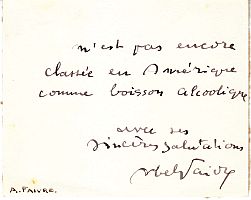 n'est pas encore
classée en Amérique
comme boisson alcoolique
avec ses
sincères salutations
Abel Faivre
A. FAIVRE.